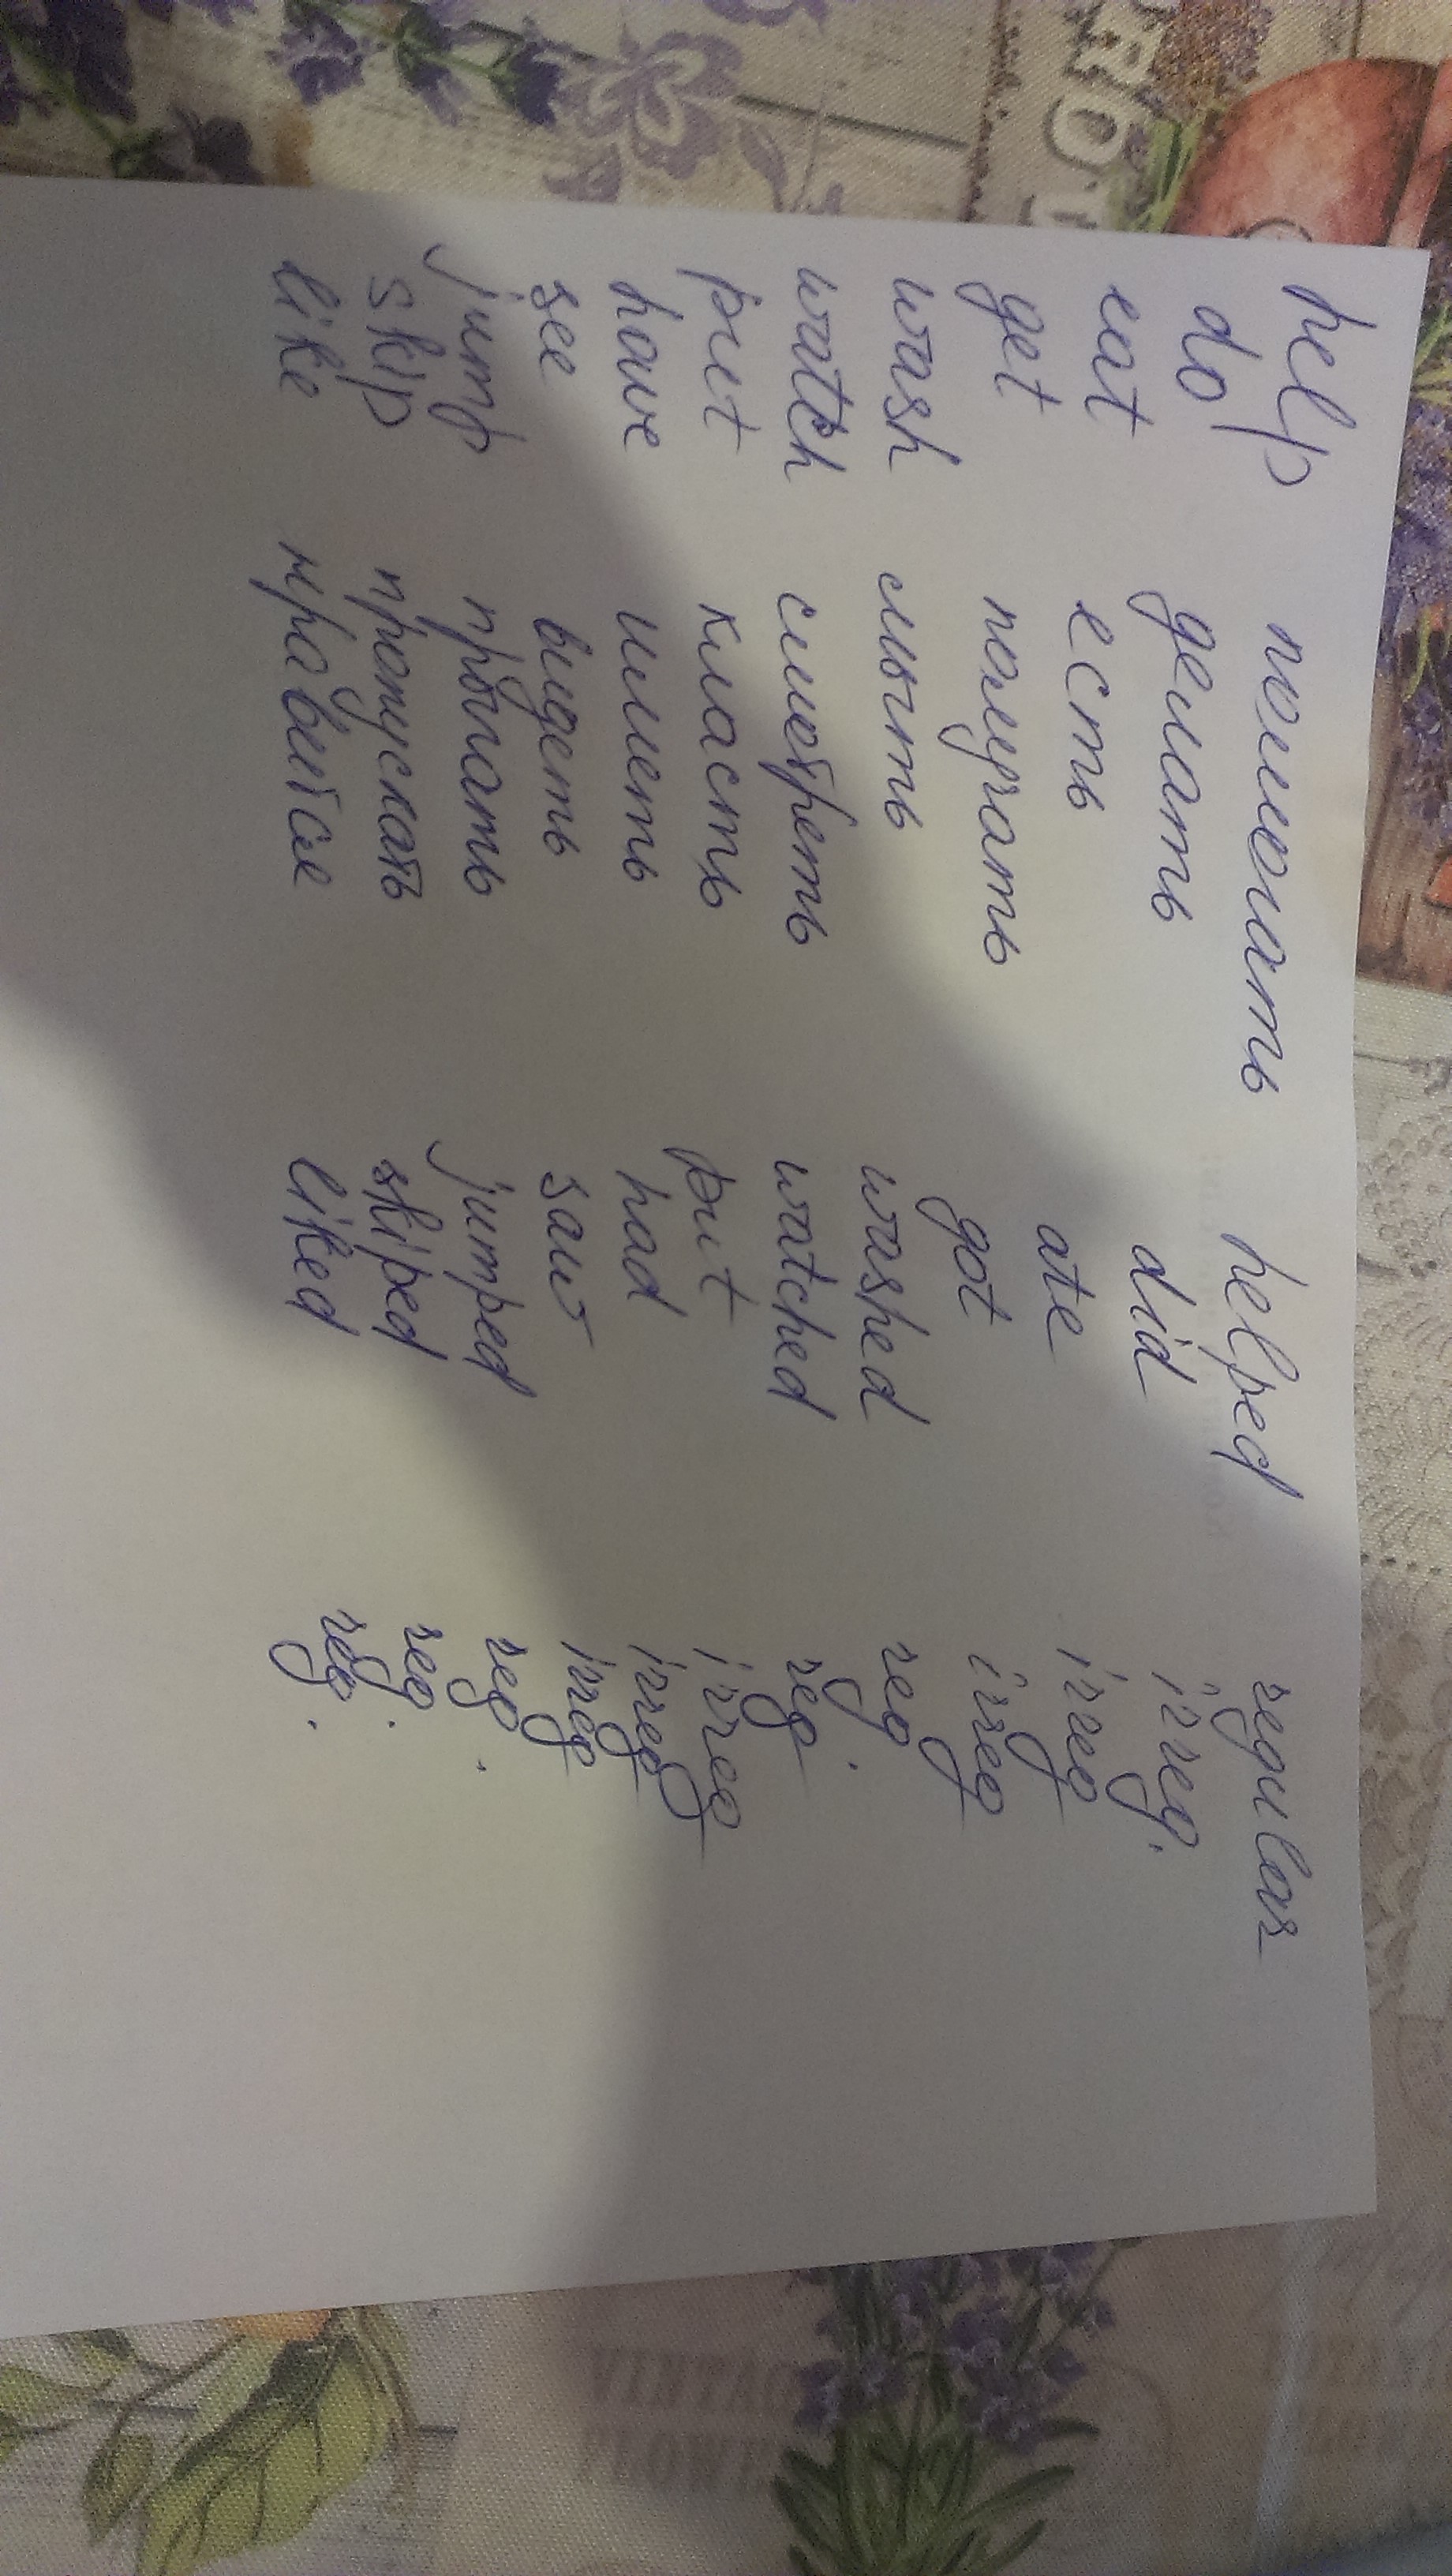 help помогать helped regular
do делать did irreg.
eat есть ate irreg
get получать got irreg
wash мыть washed reg
watch смотреть watched reg.
put класть put irreg
have иметь had irreg
see видеть saw irreg
jump прыгать jumped reg.
skip пропускать skiped reg.
like нравится liked reg.